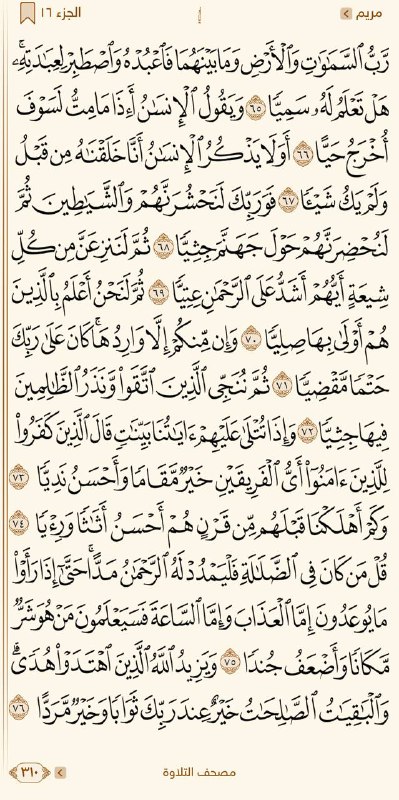 مريم
الجزء ١٦
رَّبُّ ٱلسَّمَٰوَٰتِ وَٱلْأَرْضِ وَمَا بَيْنَهُمَا فَٱعْبُدْهُ وَٱصْطَبِرْ لِعِبَٰدَتِهِۦۚ
هَلْ تَعْلَمُ لَهُۥ سَمِيًّا ٦٥ وَيَقُولُ ٱلْإِنسَٰنُ أَءِذَا مَا مِتُّ لَسَوْفَ
أُخْرَجُ حَيًّا ٦٦ أَوَلَا يَذْكُرُ ٱلْإِنسَٰنُ أَنَّا خَلَقْنَٰهُ مِن قَبْلُ
وَلَمْ يَكُ شَيْـًٔا ٦٧ فَوَرَبِّكَ لَنَحْشُرَنَّهُمْ وَٱلشَّيَٰطِينَ ثُمَّ
لَنُحْضِرَنَّهُمْ حَوْلَ جَهَنَّمَ جِثِيًّا ٦٨ ثُمَّ لَنَنزِعَنَّ مِن كُلِّ
شِيعَةٍ أَيُّهُمْ أَشَدُّ عَلَى ٱلرَّحْمَٰنِ عِتِيًّا ٦٩ ثُمَّ لَنَحْنُ أَعْلَمُ بِٱلَّذِينَ
هُمْ أَوْلَىٰ بِهَا صِلِيًّا ٧٠ وَإِن مِّنكُمْ إِلَّا وَارِدُهَاۚ كَانَ عَلَىٰ رَبِّكَ
حَتْمًا مَّقْضِيًّا ٧١ ثُمَّ نُنَجِّى ٱلَّذِينَ ٱتَّقَوا۟ وَّنَذَرُ ٱلظَّٰلِمِينَ
فِيهَا جِثِيًّا ٧٢ وَإِذَا تُتْلَىٰ عَلَيْهِمْ ءَايَٰتُنَا بَيِّنَٰتٍ قَالَ ٱلَّذِينَ كَفَرُوا۟
لِلَّذِينَ ءَامَنُوٓا۟ أَىُّ ٱلْفَرِيقَيْنِ خَيْرٌ مَّقَامًا وَأَحْسَنُ نَدِيًّا ٧٣
وَكَمْ أَهْلَكْنَا قَبْلَهُم مِّن قَرْنٍ هُمْ أَحْسَنُ أَثَٰثًا وَرِءْيًا ٧٤
قُلْ مَن كَانَ فِى ٱلضَّلَٰلَةِ فَلْيَمْدُدْ لَهُ ٱلرَّحْمَٰنُ مَدًّاۚ حَتَّىٰٓ إِذَا رَأَوْا۟
مَا يُوعَدُونَ إِمَّا ٱلْعَذَابَ وَإِمَّا ٱلسَّاعَةَ فَسَيَعْلَمُونَ مَنْ هُوَ شَرٌّ
مَّكَانًا وَأَضْعَفُ جُندًا ٧٥ وَيَزِيدُ ٱللَّهُ ٱلَّذِينَ ٱهْتَدَوْا۟ هُدًىۗ
وَٱلْبَٰقِيَٰتُ ٱلصَّٰلِحَٰتُ خَيْرٌ عِندَ رَبِّكَ ثَوَابًا وَخَيْرٌ مَّرَدًّا ٧٦
مصحف التلاوة
٣١٠